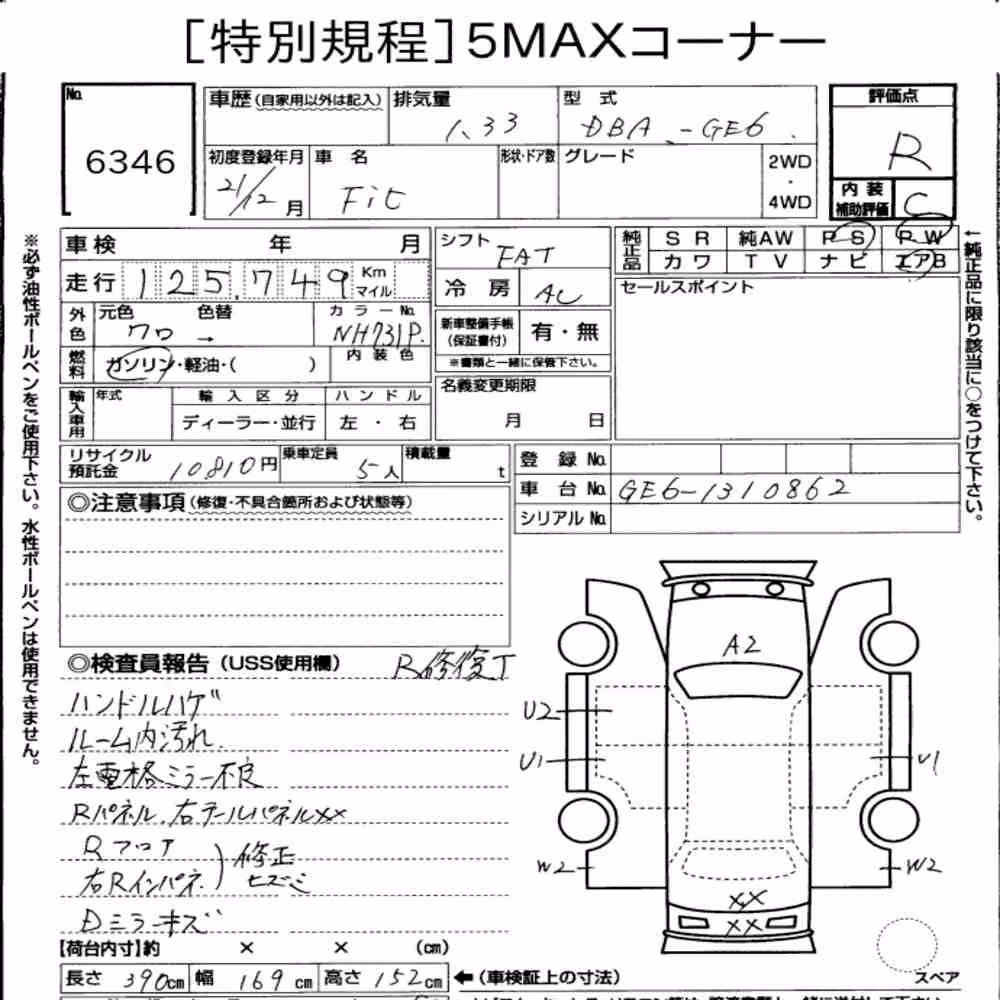 [特別規程]5MAXコーナー
No. 6346
車歴(自家用以外は記入) 排気量 1.33 型式 DBA-GE6 評価点 R
初度登録年月 21/12月 車名 Fit 形状・ドア数 グレード 2WD・4WD 内装補助評価 C
車検 年 月 シフト FAT 純正品 SR 純AW PS PW
走行 125,749 Km マイル 冷房 AC カワ TV ナビ エアB
外色 元色 クロ 色替 → カラーNo. NH731P 新車整備手帳(保証書付) 有・無 セールスポイント
燃料 ガソリン・軽油・( ) 内装色 ※書類と一緒に保管下さい。
輸入車用 年式 輸入区分 ハンドル 名義変更期限
ディーラー・並行 左・右 月 日
リサイクル預託金 10,810円 乗車定員 5人 積載量 t 登録No.
車台No. GE6-1310862
◎注意事項(修復・不具合箇所および状態等) シリアルNo.
◎検査員報告(USS使用欄) R修復丁
ハンドルハゲ
ルーム内汚れ
左電格ミラー不良
Rパネル、右テールパネルXX
Rフロア
右Rインパネ.)修正ヒズミ
Dミラーキズ
A2
U2
U1
U1
W2
W2
XX
XX
スペア
【荷台内寸】約 × × (cm)
長さ 390cm 幅 169cm 高さ 152cm ←(車検証上の寸法)
※必ず油性ボールペンをご使用下さい。水性ボールペンは使用できません。
←純正品に限り該当に○をつけて下さい。